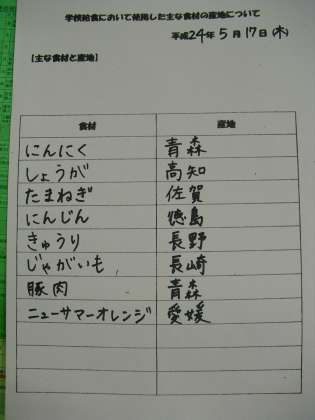 学校給食において使用した主な食材の産地について
平成24年5月17日(木)
【主な食材と産地】
食材 産地
にんにく 青森
しょうが 高知
たまねぎ 佐賀
にんじん 徳島
きゅうり 長野
じゃがいも 長崎
豚肉 青森
ニューサマーオレンジ 愛媛